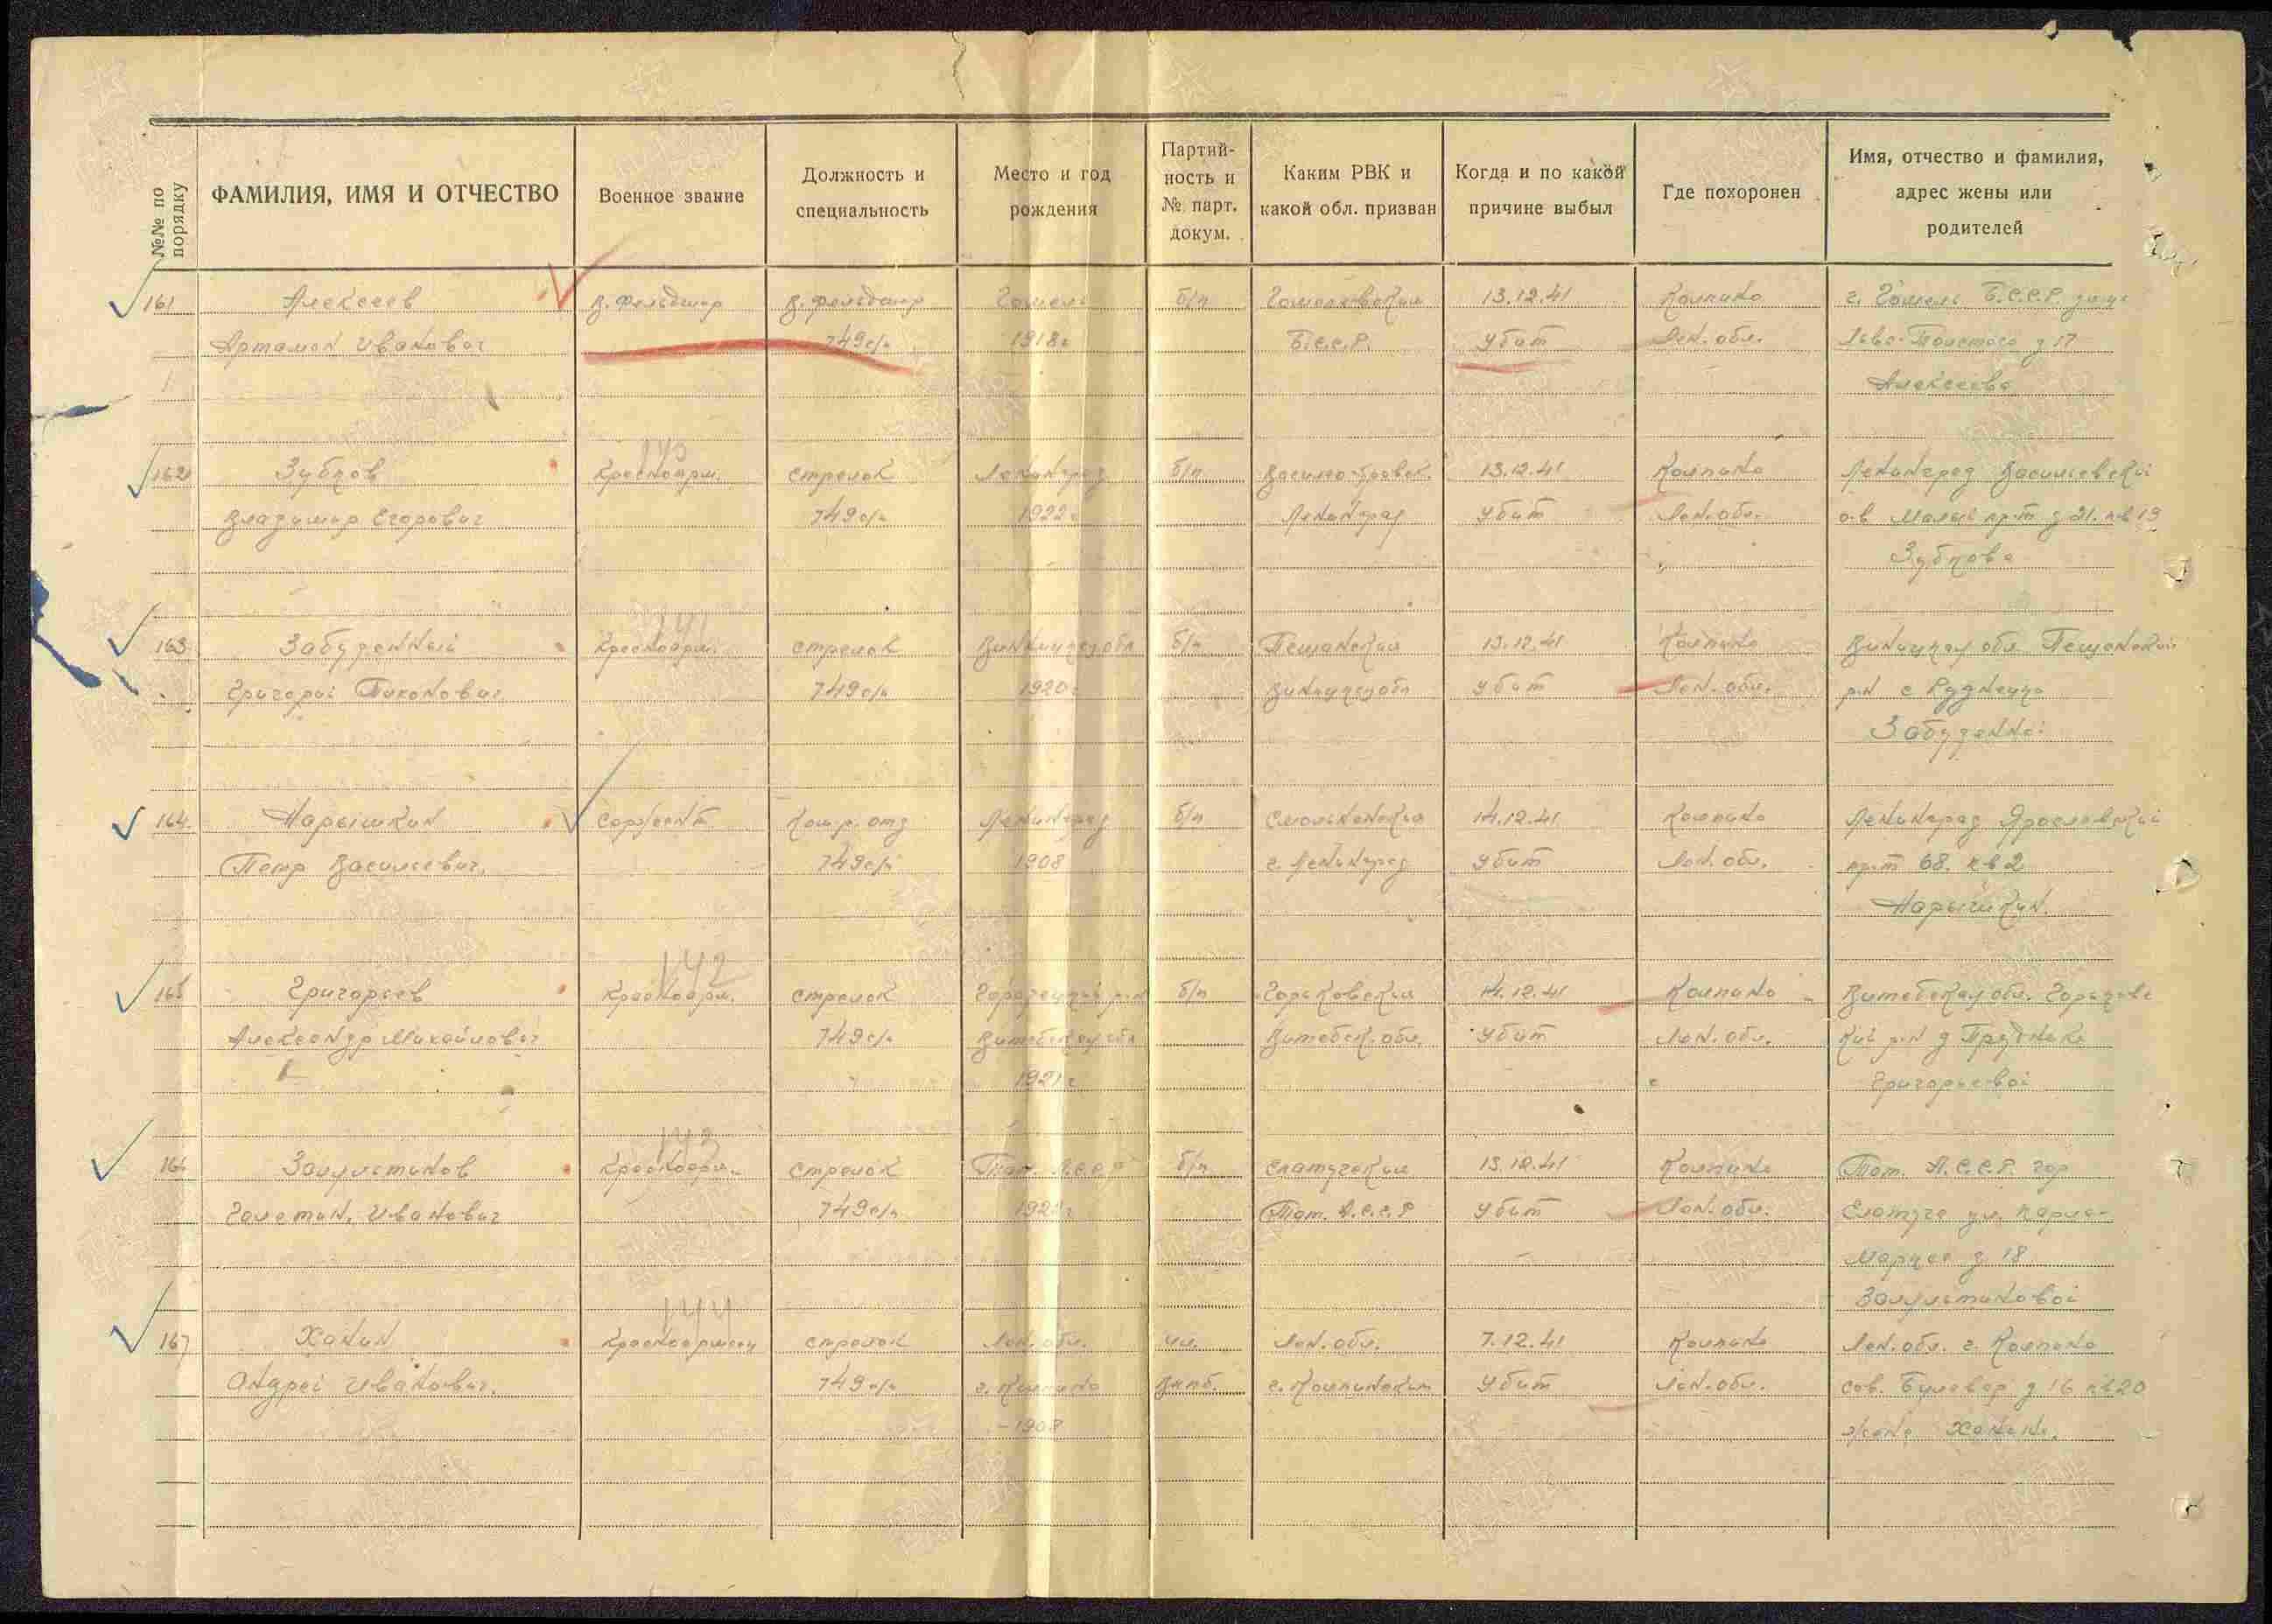 №№ по порядку
ФАМИЛИЯ, ИМЯ И ОТЧЕСТВО
Военное звание
Должность и
специальность
Место и год
рождения
Партий-
ность и
№ парт.
докум.
Каким РВК и
какой обл. призван
Когда и по какой
причине выбыл
Где похоронен
Имя, отчество и фамилия,
адрес жены или
родителей
161 Алексеев В. фельдшер В. фельдшер Гомель б/п 13.12.41 Колпино г. Гомель Б.С.С.Р.
Артамон Иванович 749 с/п 1918г Б.С.С.Р. Убит Лен. обл. Льва-Толстого д 17
Алексеева
143
162 Зубков Красноарм. стрелок Ленинград б/п 13.12.41 Колпино Ленинград Васильевский
Владимир Егорович 749 с/п 1922г Ленинград Убит Лен. обл. о-в Малый пр-т д 21. кв 19
Зубкова
141
163 Забуденный Красноарм. стрелок б/п Пещанский 13.12.41 Колпино обл. Пещанский
Григорий 749 с/п 1920г Убит Лен. обл. р-н с
164. Нарышкин Сержант Ком-р. отд Ленинград б/п 14.12.41 Колпино Ленинград Ярославский
Петр Васильевич. 749 с/п 1908 г. Ленинград Убит Лен. обл. пр-т 68. кв 2
Нарышкин.
142
165 Григорьев Красноарм. стрелок б/п 14.12.41 Колпино Витебская обл.
Александр Михайлович 749 с/п Витебск. обл. Убит Лен. обл. р-н д
1921г Григорьевой
143
166 Красноарм. стрелок Тат. А.С.С.Р б/п 13.12.41 Колпино Тат. А.С.С.Р. гор
Иванович 749 с/п Тат. А.С.С.Р Убит Лен. обл. ул. Карла-
Маркса д 18
144
167 Ханин стрелок Лен. обл. чл. Лен. обл. 7.12.41 Колпино Лен. обл. г. Колпино
Андрей Иванович. 749 с/п г. Колпино вкпб. г. Колпинским Убит Лен. обл. сов. Бульвар д 16 кв 20
-1908 жена Ханина.